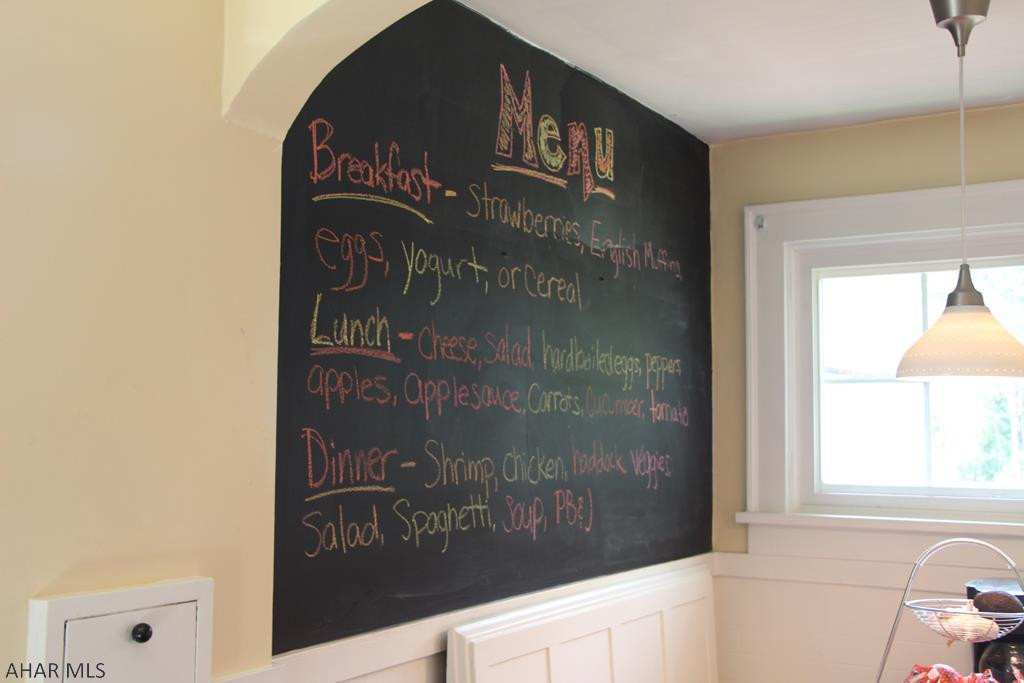 Menu
Breakfast - Strawberries, English Muffins,
eggs, yogurt, or cereal
Lunch - cheese, salad, hardboiled eggs, peppers
apples, applesauce, carrots, cucumber, tomato
Dinner - Shrimp, chicken, haddock veggies
Salad, Spaghetti, Soup, PB&J
AHAR MLS